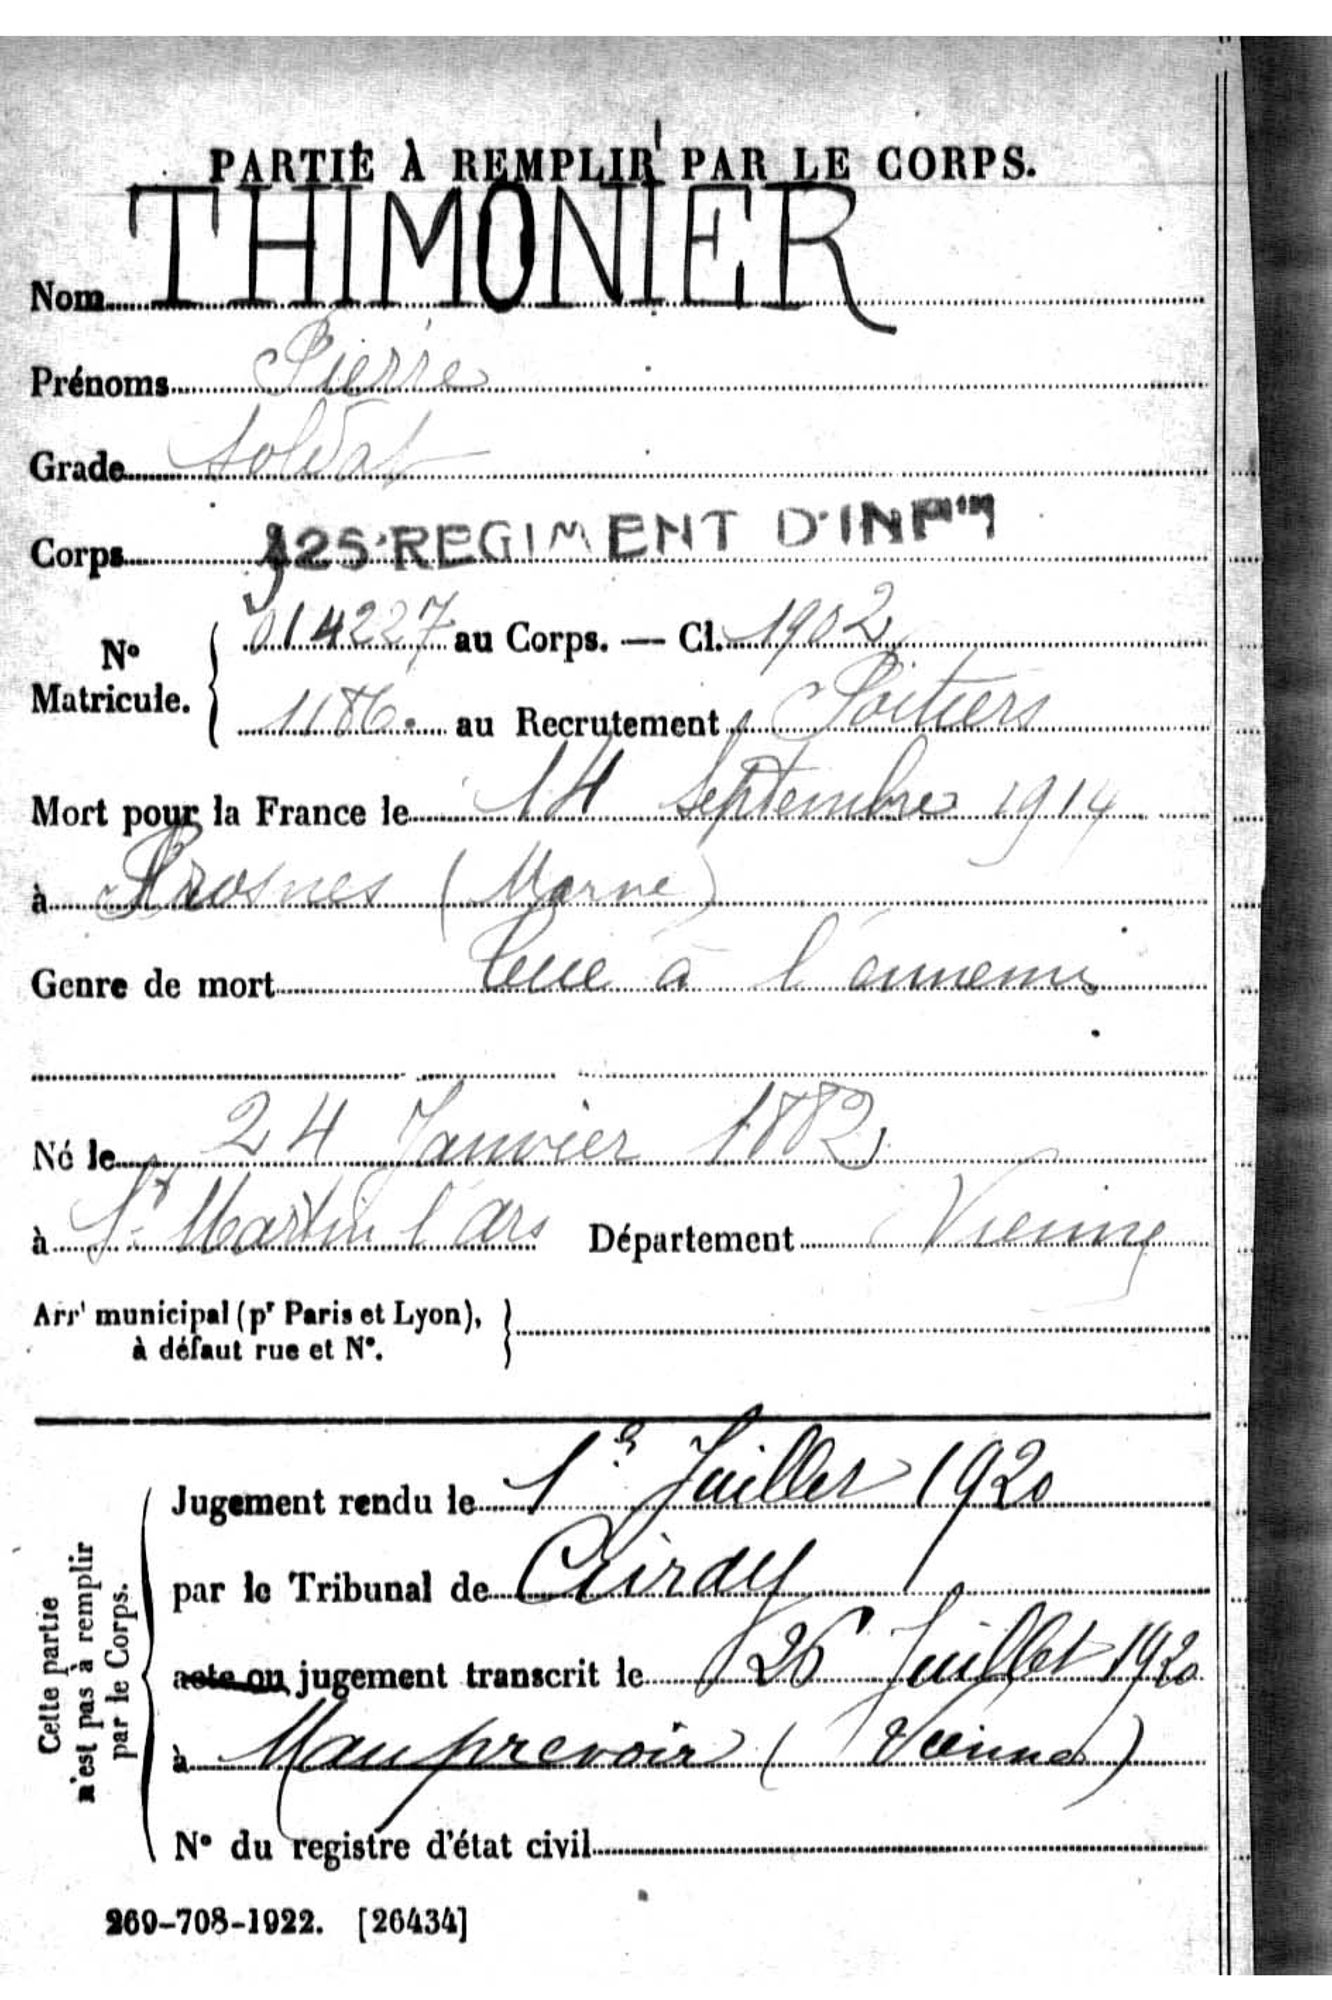 PARTIE À REMPLIR PAR LE CORPS.
Nom THIMONIER
Prénoms Pierre
Grade Soldat
Corps 325 REGIMENT D'INF
N° Matricule. 014227 au Corps. — Cl. 1902
1186. au Recrutement Poitiers
Mort pour la France le 14 Septembre 1914
à Prosnes (Marne)
Genre de mort Tué à l'ennemi
Né le 24 Janvier 1882
à St Martin l'Ars Département Vienne
Arrt municipal (pr Paris et Lyon),
à défaut rue et N°.
Cette partie n'est pas à remplir par le Corps.
Jugement rendu le 1er Juillet 1920
par le Tribunal de Civray
acte ou jugement transcrit le 26 Juillet 1920
à Mauprevoir (Vienne)
N° du registre d'état civil
269-708-1922. [26434]